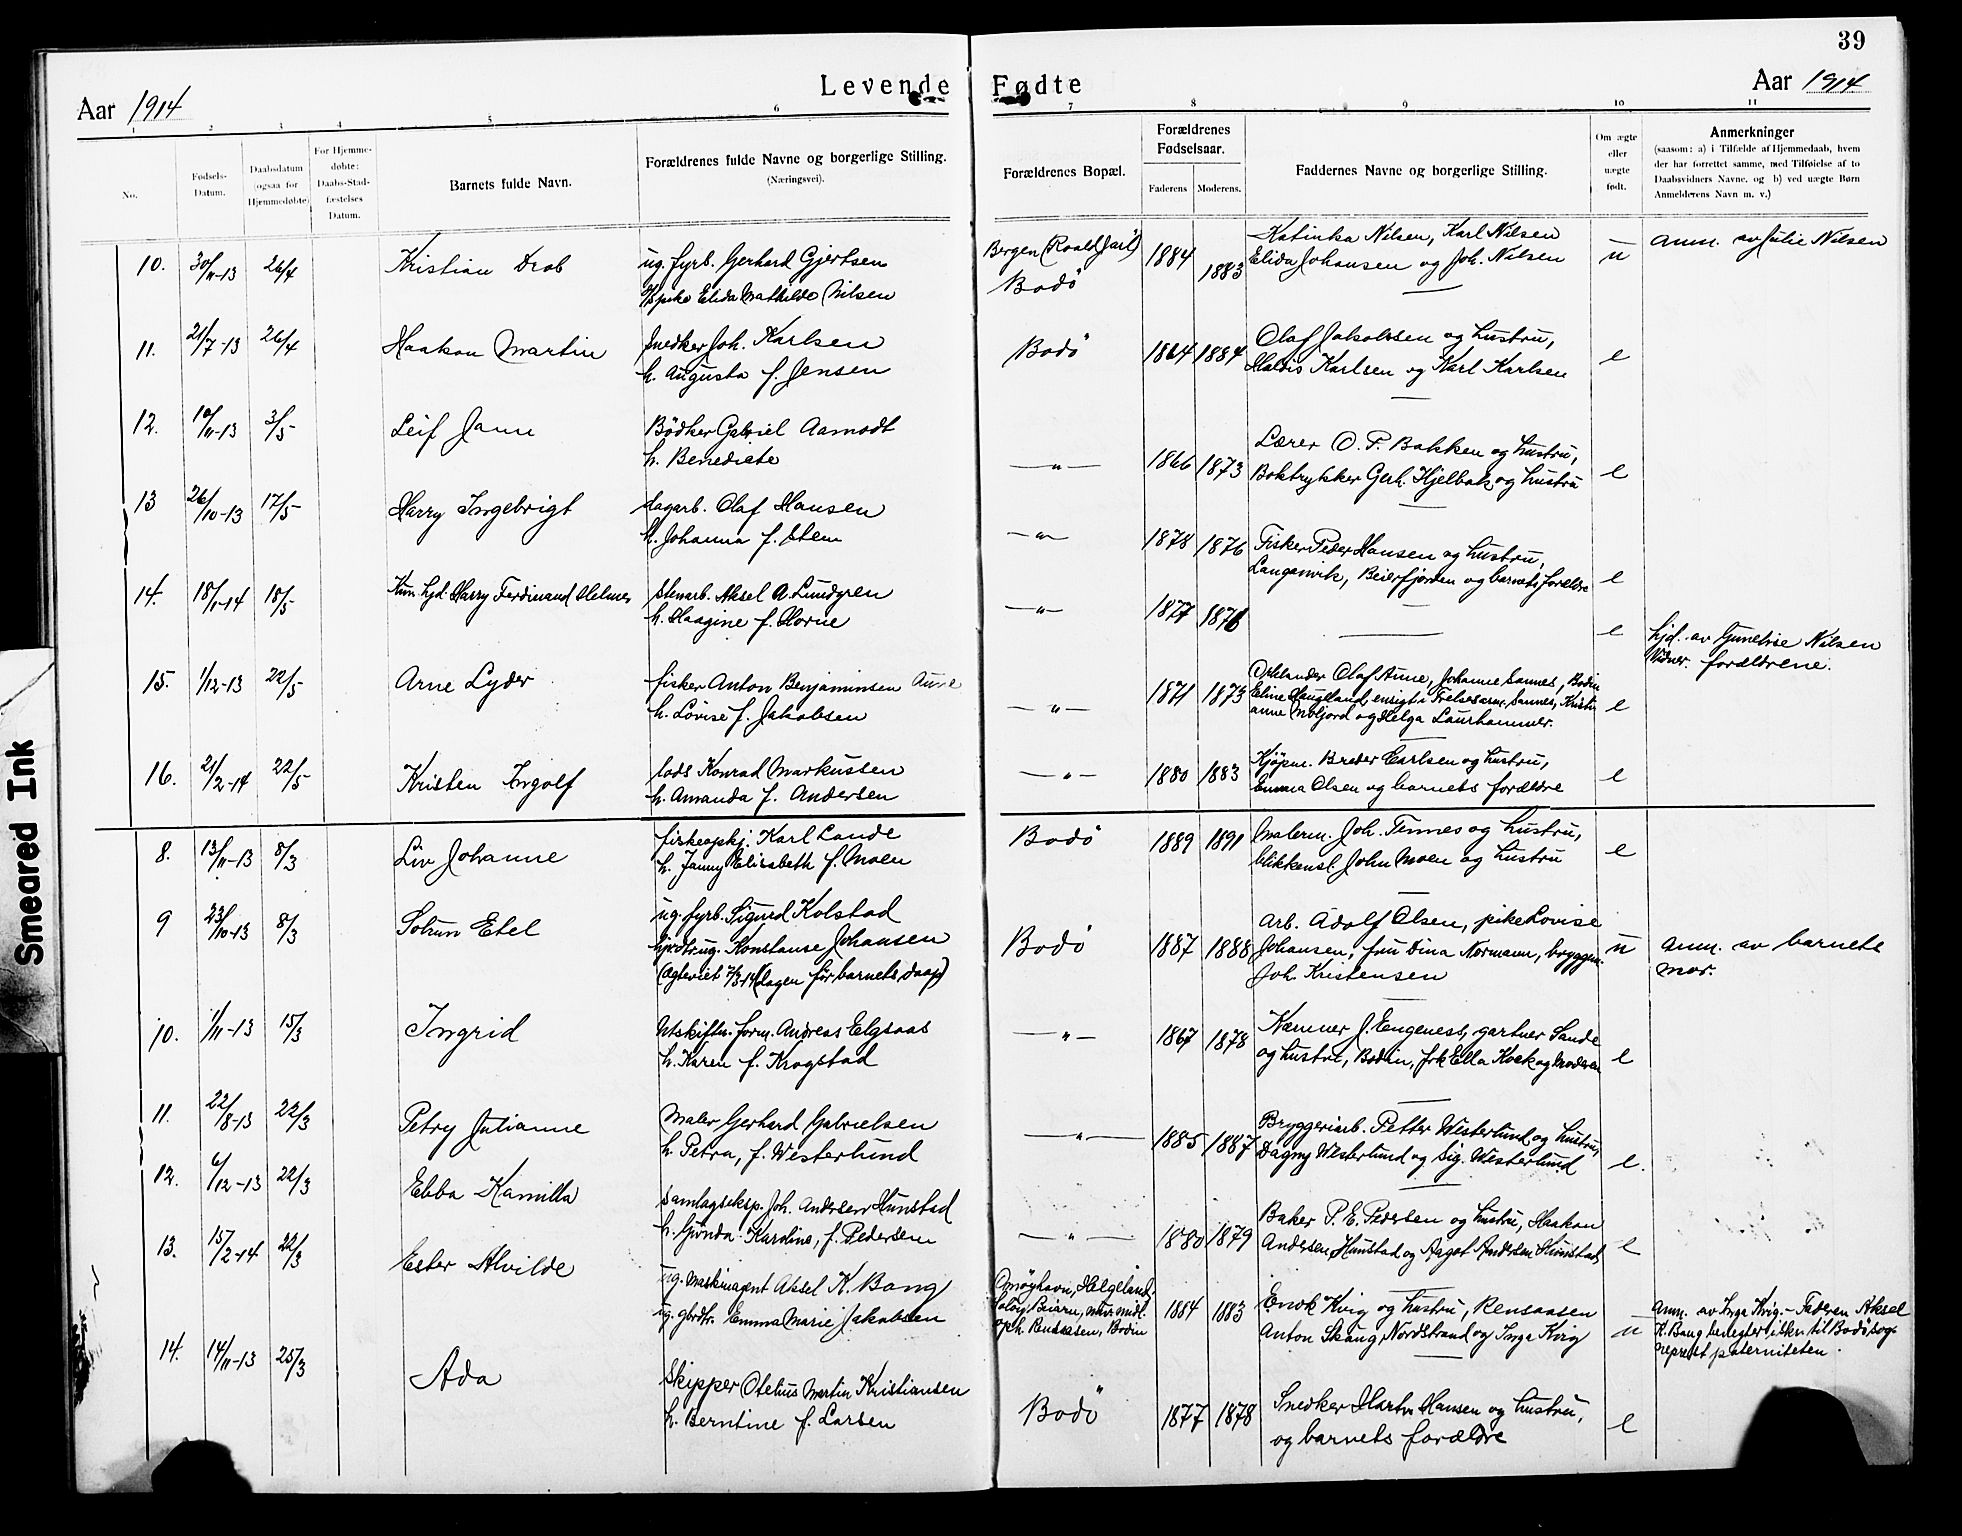 39
Levende Fødte
Aar 1914
Aar 1914
1 2 3 4 5 6 7 8 9 10 11
No.
Fødsels-
Datum.
Daabsdatum
(ogsaa for
Hjemmedøbte)
For Hjemme-
døbte:
Daabs-Stad-
fæstelses
Datum.
Barnets fulde Navn.
Forældrenes fulde Navne og borgerlige Stilling.
(Næringsvei).
Forældrenes Bopæl.
Forældrenes
Fødselsaar.
Faderens Moderens.
Faddernes Navne og borgerlige Stilling.
Om ægte
eller
uægte
født.
Anmerkninger
(saasom: a) i Tilfælde af Hjemmedaab, hvem
der har forrettet samme, med Tilføielse af to
Daabsvidners Navne, og b) ved uægte Børn
Anmelderens Navn m. v.)
10. 30/11-13 26/4 Kristian ug. fyrb. Gerhard Gjertsen Bergen (Roald Jarl) 1884 Katinka Nilsen, Karl Nilsen u anm. av Julie Nilsen
pike Elida Mathilde Nilsen Bodö 1883 Elida Johansen og Joh. Nilsen
11. 21/7-13 26/4 Haakon Martin snedker Joh. Karlsen Bodö 1864 1884 Olaf Jakobsen og hustru, e
h. Augusta f. Jensen Haldis Karlsen og Karl Karlsen
12. 10/11-13 3/5 Leif Bödker Gabriel Aamodt
h. Benedicte —„— 1866 1873 Lærer O. P. Bakken og hustru, e
Boktrykker Gerh. Hjelbak og hustru
13 26/10-13 17/5 Harry Ingebrigt dagarb. Olaf Hansen —„— 1878 1876 Fisker Peder Hansen og hustru,
h. Johanna f. Stem Langanvik, Beierfjorden og barnets forældre e
14. 18/1-14 18/5 Kun hjd. Harry Ferdinand Helmer Stenarb. Aksel A. Lundgren —„— 1877 1876 e
h. Haagine f. Horne hjd. av Nilsen
Vidner. forældrene.
15. 1/12-13 22/5 Arne Lyder fisker Anton Benjaminsen Aune —„— 1871 1873 Olaf Aune, Johanne Sannes, Bodin e
h. Lovise f. Jakobsen Eline Haugland, ensigt i Frelsesarm. Sannes, Kristi-
anne Moljord og Helga Laurhammer.
16. 21/2-14 22/5 Kristen Ingolf lods Konrad Markussen —„— 1880 1883 Kjöpm. Breder Carlsen og hustru, e
h. Amanda f. Andersen Emma Olsen og barnets forældre
8. 13/11-13 8/3 Liv Johanne fiskeopkj. Karl Lande Bodö 1889 1891 Malerm. Joh. Tennes og hustru, e
h. Janny Elisabeth f. Moen blikkensl. John Moen og hustru
9 23/10-13 8/3 Solrun Etel ug. fyrb. Sigurd Kolstad Arb. Adolf Olsen, pike Lovise
Konstanse Johansen Bodö 1887 1888 Johansen, fru Dina Normann, bryggem. u anm. av barnets
(ægteviet 7/3-14 (dagen för barnets daap) Joh. Kristensen mor.
10. 1/11-13 15/3 Ingrid Utskiftn. form. Andreas Elgsaas —„— 1867 1878 Kæmner J. Engeness, gartner Sande
h. Karen f. Krogstad og hustru, Bodin, frk Ella Koek og moderen e
11. 22/8-13 22/3 Petry Julianne Maler Gerhard Gabrielsen —„— 1885 1887 Bryggeriarb. Petter Westerlund og hustru,
h. Petra, f. Westerlund Dagny Westerlund og Sig. Westerlund e.
12. 6/12-13 22/3 Ebba Kamilla Samlagseksp. Joh. Andersen Hunstad —„— 1880 1879 Baker P. E. Pedersen og hustru, Haakon
h. Gunda Karoline, f. Pedersen Andersen Hunstad og Aagot Andersen Hunstad e
13. 15/2-14 22/3 Ester Alvilde ug. Maskinagent Aksel K. Bang Helgeland. 1884 1883 Enok Kvig og hustru, Rensaasen u anm. av Inga Kvig. – Faderen Aksel
ug. gbrdtr. Emma Marie Jakobsen Beiarn, nu midl. Anton Skaug, Nordstrand og Inga Kvig K. Bang benegter i skr. til Bodö sog-
oph. Rensaasen, Bodin neprest paterniteten.
14. 14/11-13 25/3 Ada Skipper Otelius Martin Kristiansen Bodö 1877 1878 Snedker Hartv. Hansen og hustru, e
h. Berntine f. Larsen og barnets forældre
Smeared Ink